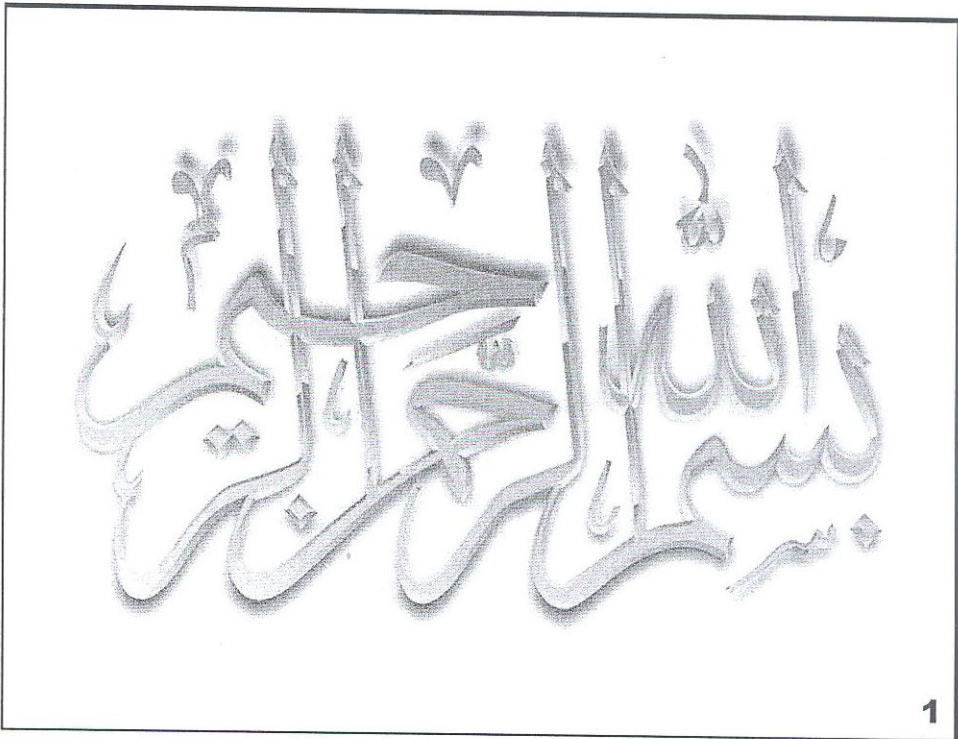 بسم الله الرحمن الرحيم
1